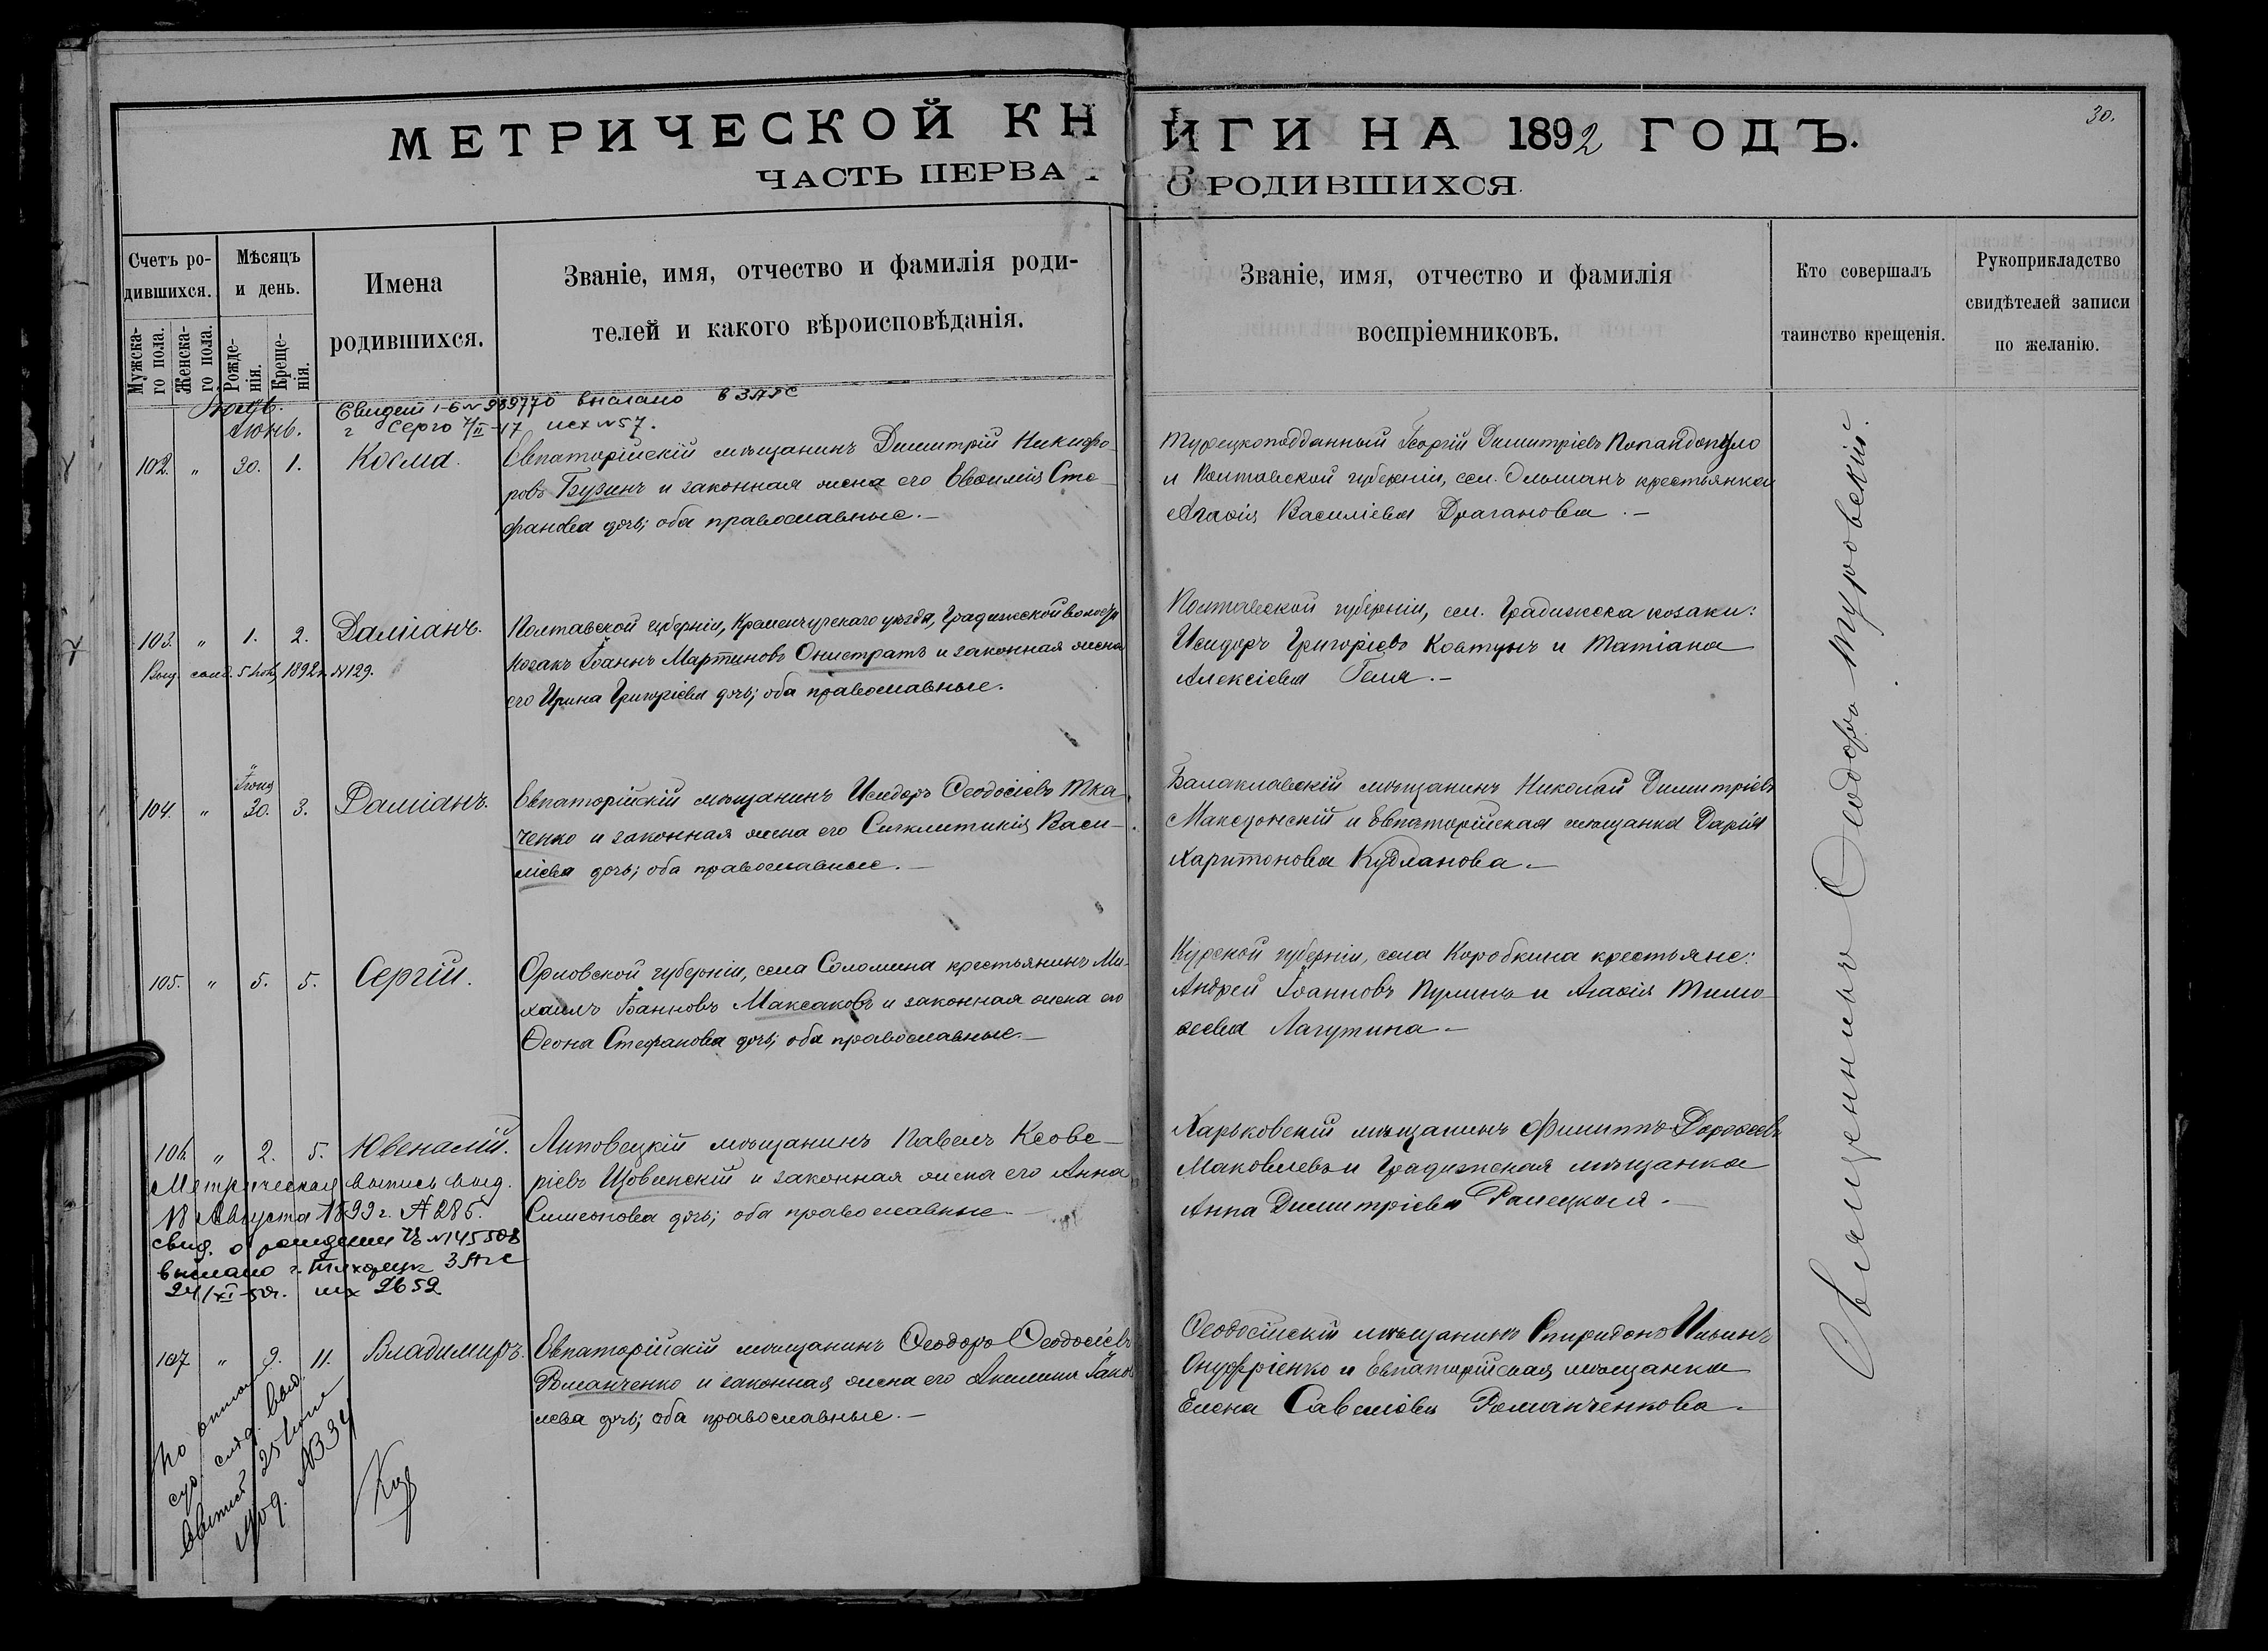 30.
МЕТРИЧЕСКОЙ КНИГИ НА 1892 ГОДЪ.
ЧАСТЬ ПЕРВА О РОДИВШИХСЯ.
Счетъ ро-
дившихся.
Мужска-
го пола.
Женска-
го пола.
Мѣсяцъ
и день.
Рожде-
нія.
Креще-
нія.
Имена
родившихся.
Званіе, имя, отчество и фамилія роди-
телей и какого вѣроисповѣданія.
Званіе, имя, отчество и фамилія
воспріемниковъ.
Кто совершалъ
таинство крещенія.
Рукоприкладство
свидѣтелей записи
по желанію.
Іюнь.
выслано в ЗАГС
исх № 57.
102. " 30. 1. Косма.
Евпаторійскій мѣщанинъ Димитрій Никифо-
ровъ Бузинъ и законная жена его Евфимія Сте-
фанова дочь; оба православные.-
Турецкоподданный Георгій Димитріевъ Попандопуло
и Полтавской губерніи, сел. Ольшанъ крестьянка
Агафія Василіева Драганова.-
103. " 1. 2. Даміанъ.
Выд. свид. 5 1892 г. №129.
Полтавской губерніи, Кременчугскаго уѣзда, Градижской волости
козакъ Іоаннъ Мартиновъ Онистратъ и законная жена
его Ирина Григоріева дочь; оба православные.
Полтавской губерніи, сел. Градижска козаки:
Исидоръ Григоріевъ Ковтунъ и Татіана
Алексіева Геля.-
104. " 30. 3. Даміанъ.
Евпаторійскій мѣщанинъ Исидоръ Ѳеодосіевъ Тка-
ченко и законная жена его Синклитикія Васи-
ліева дочь; оба православные.-
Балаклавскій мѣщанинъ Николай Димитріевъ
Македонскій и Евпаторійская мѣщанка Дарія
Харитонова Кудланова.-
105. " 5. 5. Сергій.
Орловской губерніи, села Соломина крестьянинъ Ми-
хаилъ Іоанновъ Максаковъ и законная жена его
Ѳеона Стефанова дочь; оба православные.-
Курской губерніи, села Коробкина крестьяне:
Андрей Іоанновъ Пулинъ и Агафія Тимо-
ѳеева Лагутина.-
106. " 2. 5. Ювеналій.
Метрическая выпись выд.
18 Августа 1899 г. № 285.
свид. о рождении № 145508
выслано г. Тихорецк ЗАГС
24/XI-50г. исх 2652
Липовецкій мѣщанинъ Павелъ Ксаве-
ріевъ и законная жена его Анна
Симеонова дочь; оба православные.-
Харьковскій мѣщанинъ Филиппъ Дороѳеевъ
Маковлевъ и Градижская мѣщанка
Анна Димитріева Ралецкая.-
107 " 9. 11. Владимиръ.
Евпаторійскій мѣщанинъ Ѳеодоръ Ѳеодосіевъ
Романченко и законная жена его Акилина Іаков-
лева дочь; оба православные.-
Ѳеодосійскій мѣщанинъ Спиридонъ Ильинъ
Онуфріенко и Евпаторійская мѣщанка
Елена Савеліева Романченкова.-
Священникъ Ѳеодоръ Туровскій.